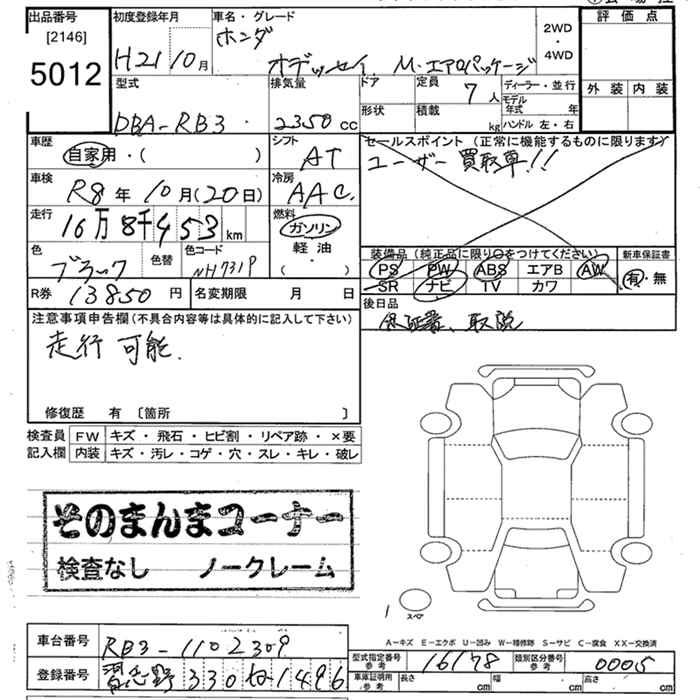 出品番号 初度登録年月 車名・グレード 評価点
[2146]
5012
H21 10月 ホンダ
オデッセイ M・エアロパッケージ
2WD
・
4WD
外装 内装
型式 排気量 ドア 定員 7人 ディーラー・並行
モデル年式 年
DBA-RB3 2350cc 形状 積載 kg ハンドル 左・右
車歴 シフト セールスポイント(正常に機能するものに限ります)
自家用・( ) AT ユーザー買取車!!
車検 冷房
R8年10月(20日) AAC
走行 燃料
16万8千453km ガソリン
軽油・
( )
色 色替 色コード 装備品(純正品に限り○をつけてください) 新車保証書
ブラック NH731P PS PW ABS エアB AW 有・無
SR ナビ TV カワ
R券 13850円 名変期限 月 日 後日品
保証書、取説
注意事項申告欄(不具合内容等は具体的に記入して下さい)
走行可能.
修復歴 有 [箇所 ]
検査員 FW キズ・飛石・ヒビ割・リペア跡・×要
記入欄 内装 キズ・汚レ・コゲ・穴・スレ・キレ・破レ
そのまんまコーナー
検査なし ノークレーム
スペア
A-キズ E-エクボ U-凹み W-補修跡 S-サビ C-腐食 XX-交換済
車台番号 RB3-1102309
型式指定番号 参考 16178 類別区分番号 参考 0005
登録番号 習志野 330 せ 1496
車庫証明用 参考 長さ cm 幅 cm 高さ cm